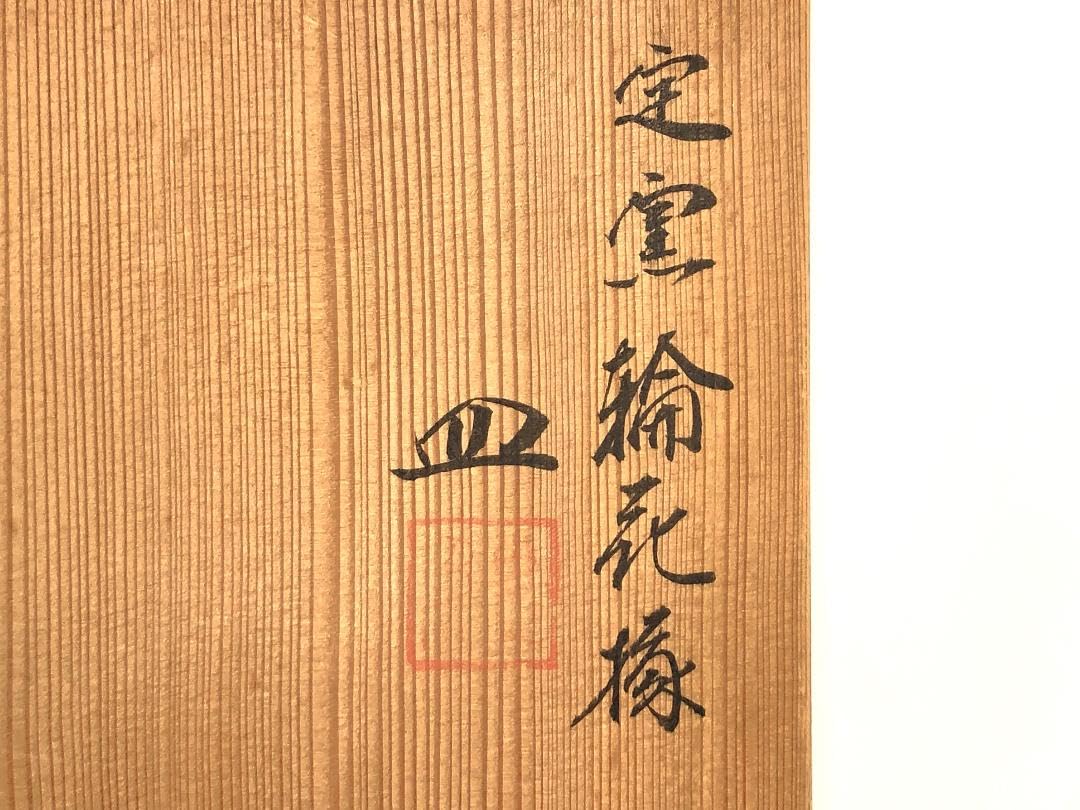 定窯輪花様
皿